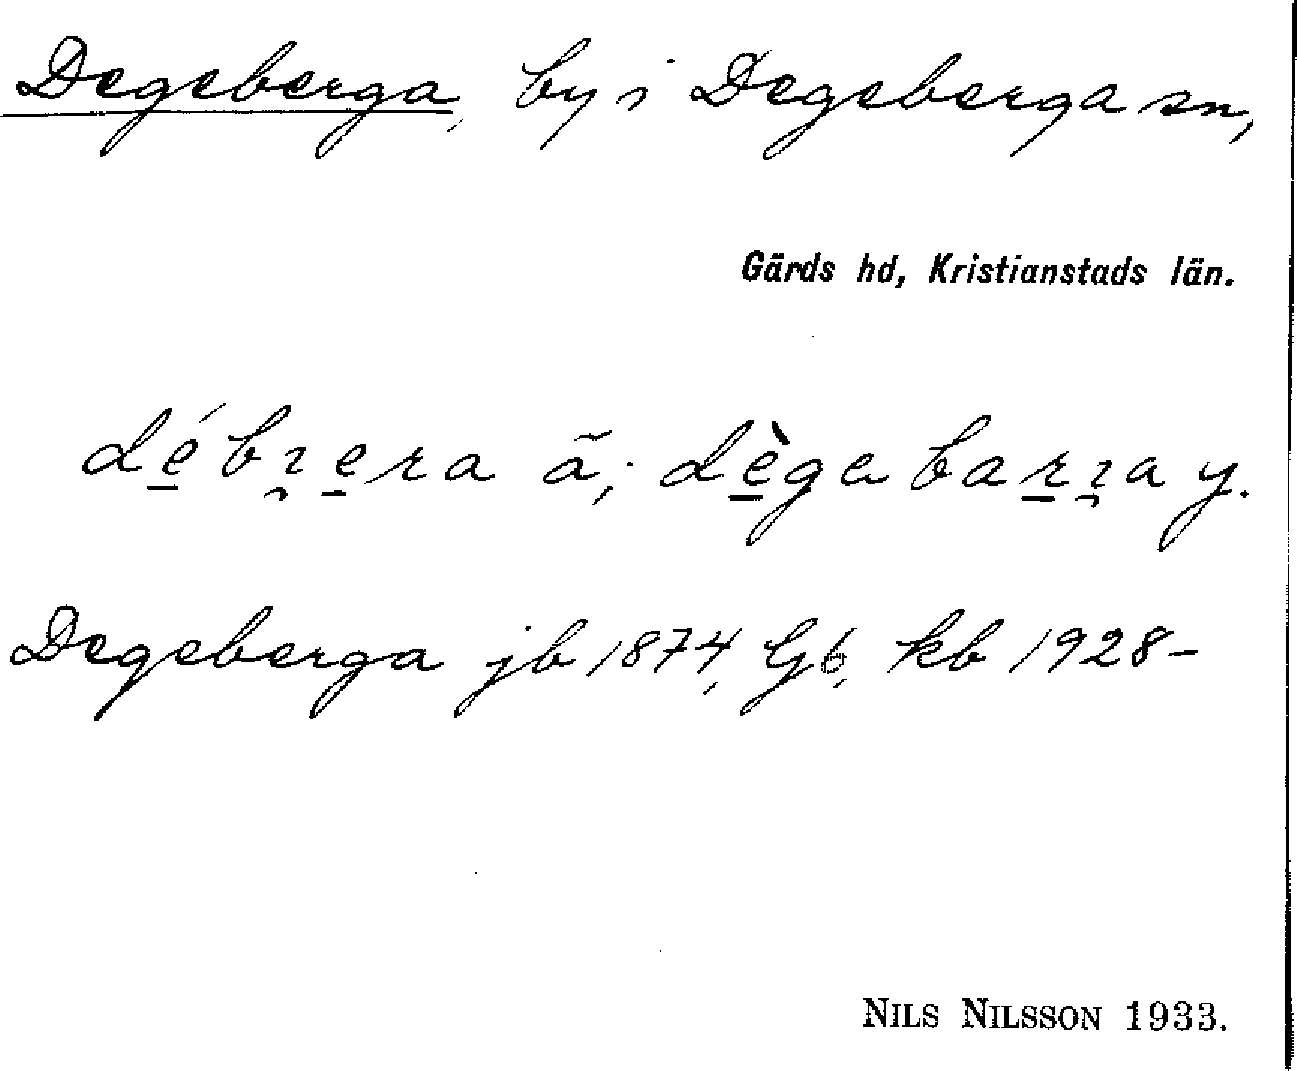 Degeberga, by i Degeberga sn,
Gärds hd, Kristianstads län.
dé̱bı̯e̱ra ã; dè̱gabar̲ı̯a y.
Degeberga jb 1874, Gb, kb 1928-
NILS NILSSON 1933.